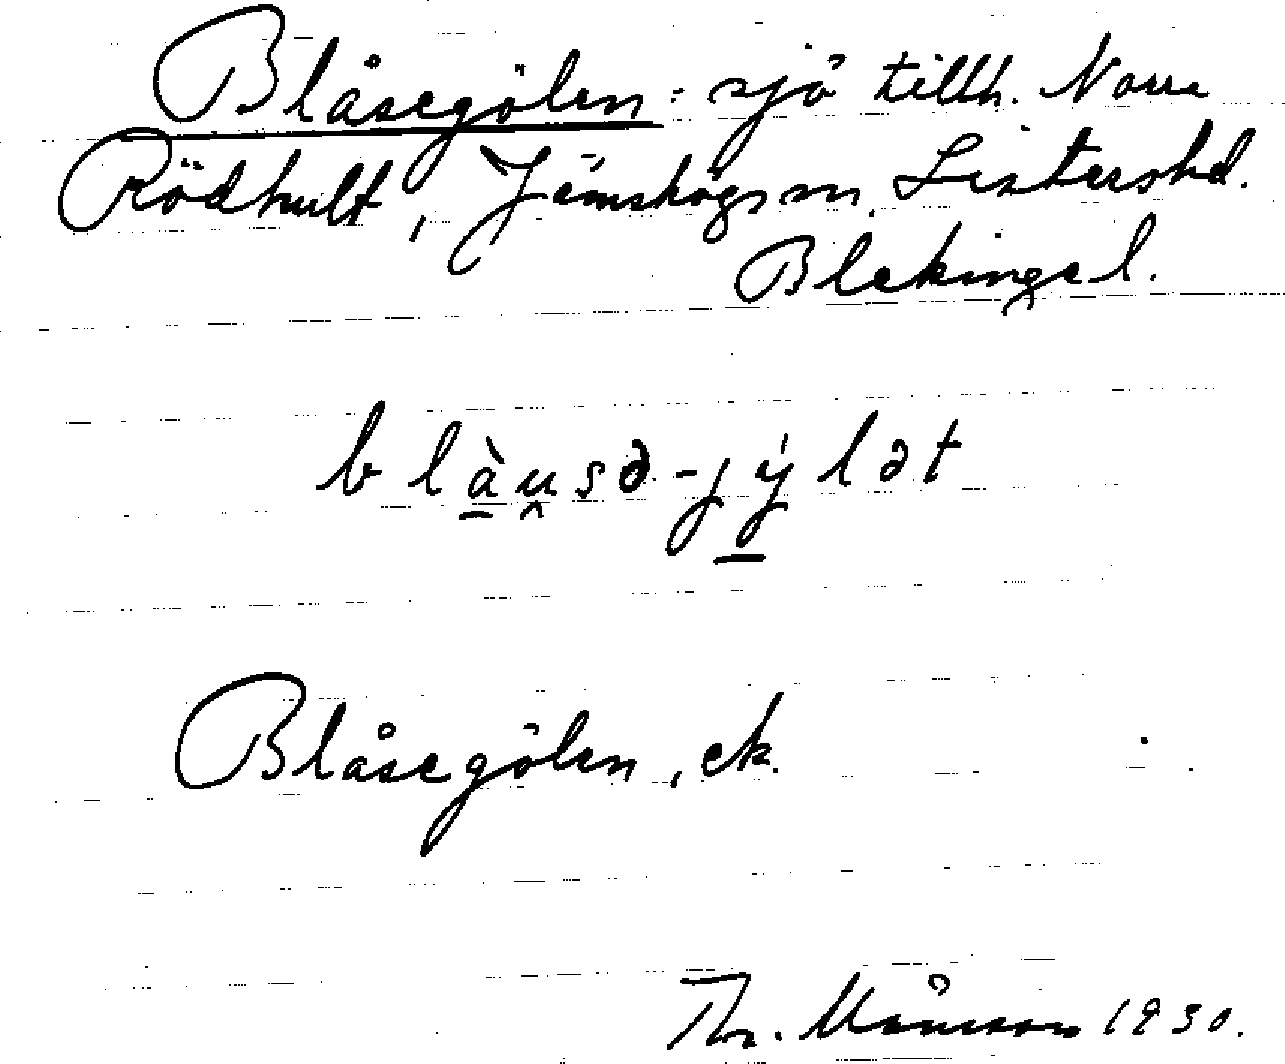 Blåsegölen: sjö tillh. Norra
Rödhult, Jämshögs sn, Listers hd.
Blekinge l.
blàu̯sə-jýlət
Blåsegölen, ek.
Th. Månsson 1930.